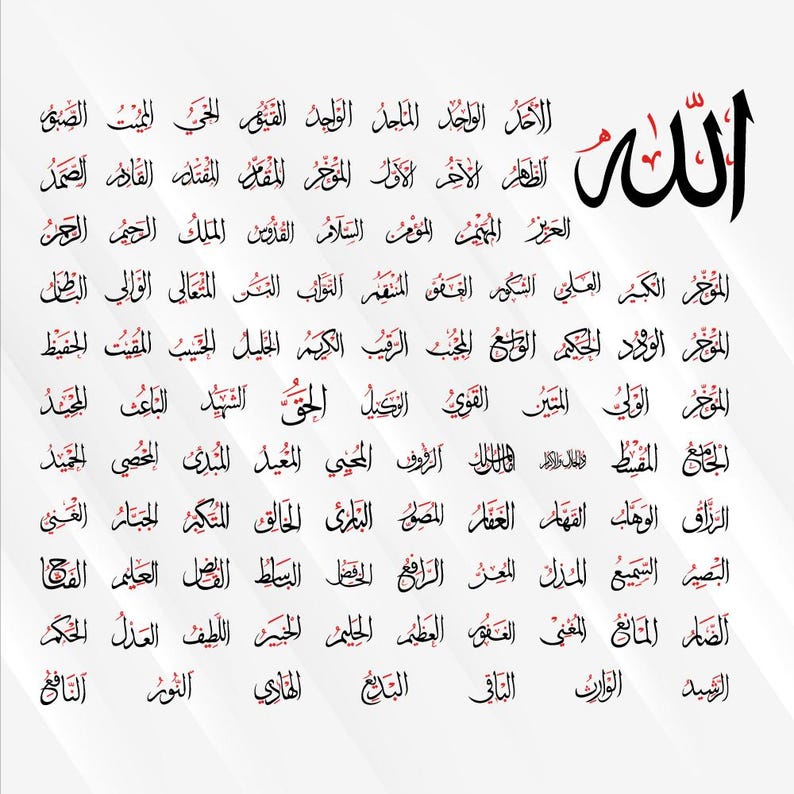 الله
الأحد الواحد الماجد الواجد القيوم الحي المميت الصبور
الظاهر الآخر الأول المؤخر المقدم المقتدر القادر الصمد
العزيز المهيمن المؤمن السلام القدوس الملك الرحيم الرحمن
المؤخر الكبير العلي الشكور العفو المنتقم التواب البر المتعالي الوالي الباطن
المؤخر الودود الحكيم الواسع المجيب الرقيب الكريم الجليل الحسيب المقيت الحفيظ
المؤخر الولي المتين القوي الوكيل الحق الشهيد الباعث المجيد
الجامع المقسط ذو الجلال والإكرام مالك الملك الرؤوف المحيي المعيد المبدئ المحصي الحميد
الرزاق الوهاب القهار الغفار المصور البارئ الخالق المتكبر الجبار الغني
البصير السميع المذل المعز الرافع الخافض الباسط القابض العليم الفتاح
الضار المانع المغني الغفور العظيم الحليم الخبير اللطيف العدل الحكم
الرشيد الوارث الباقي البديع الهادي النور النافع